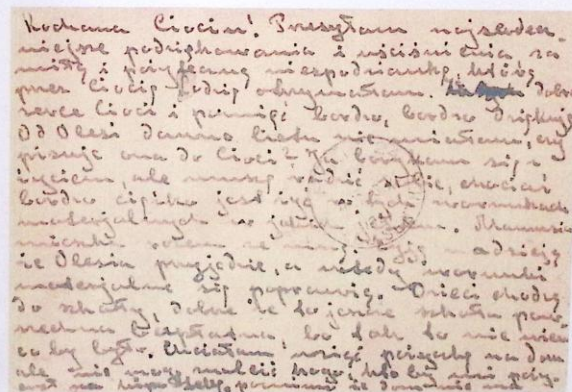 Kochana Ciociu! Przesyłam najserdecz-
niejsze podziękowania i uściśnienia za
miłą i przyjemną niespodziankę, którą
przez Ciocię Jadzię otrzymałam. Za dobre
serce Cioci i pamięć bardzo, bardzo dziękuję
Od Olesi dawno listu nie miałam, czy
pisuje ona do Cioci? Ja borykam się z
życiem, ale muszę radzić sobie, chociaż
bardzo ciężko jest żyć w tych warunkach
materjalnych w jakich jestem. Mamusia
mieszka razem ze mną. Żyję nadzieją
że Olesia przyjedzie, a wtedy warunki
materjalne się poprawią. Dzieci chodzą
do szkoły, dobrze że to jeszcze szkoła pow-
szechna bezpłatna, bo tak to nie wiem
co by było. Chciałam wziąć pożyczkę na dom
ale nie mogę znaleźć kogo, kto by mi poży-
czył na hipotekę, pomimo że dom nie